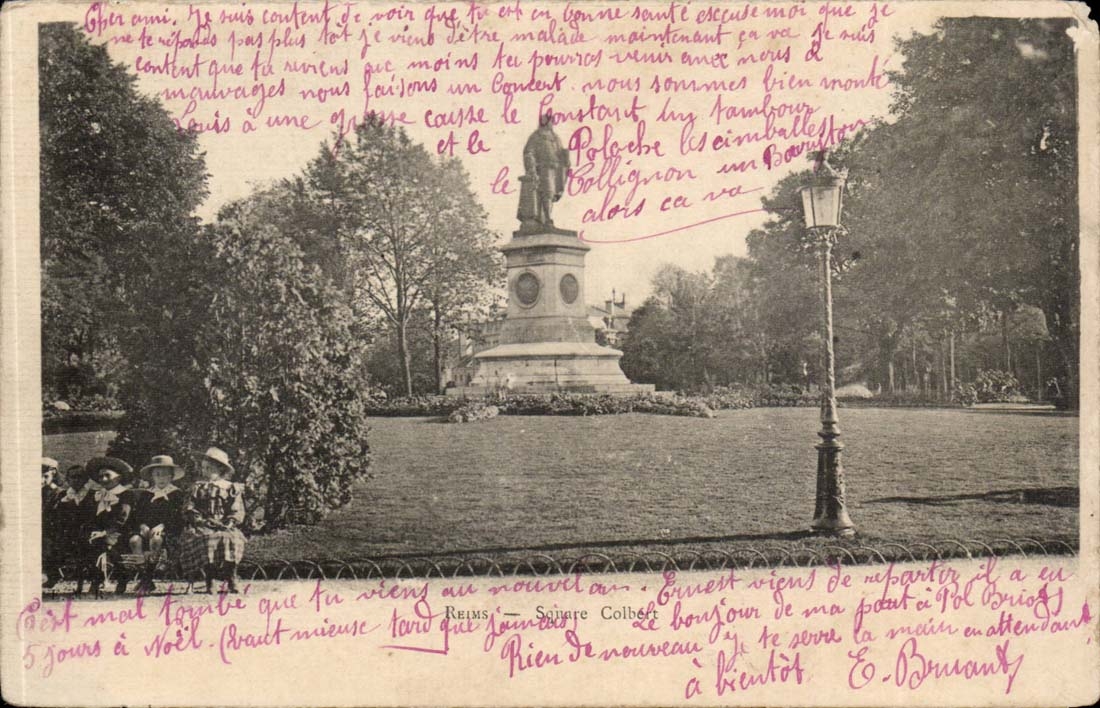 Cher ami. Je suis content de voir que tu est en bonne santé escuse moi que je
ne te réponds pas plus tôt je viens d'être malade maintenant ça va je suis
content que tu reviens au moins tu pourras venir avec nous à
mauvages nous faisons un Concert. nous sommes bien monté
Louis à une grosse caisse le Constant un tambour
et le Poloche les cimballes
le Collignon un Baryston
alors ça va
C'est mal tombé que tu viens au nouvel an. Ernest viens de repartir il a eu
5 jours à Noël. (Vaut mieuse tard que jamais)
REIMS — Square Colbert
Le bonjour de ma part à Pol
Rien de nouveau je te serre la main en attendant
à bientôt E. Bruant